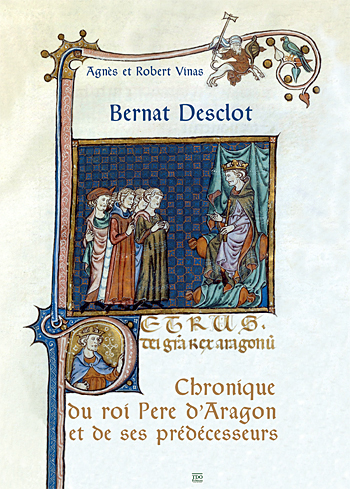 Agnès et Robert Vinas
Bernat Desclot
PETRUS.
dei gra Rex aragonu
Chronique
du roi Pere d'Aragon
et de ses prédécesseurs
TDO